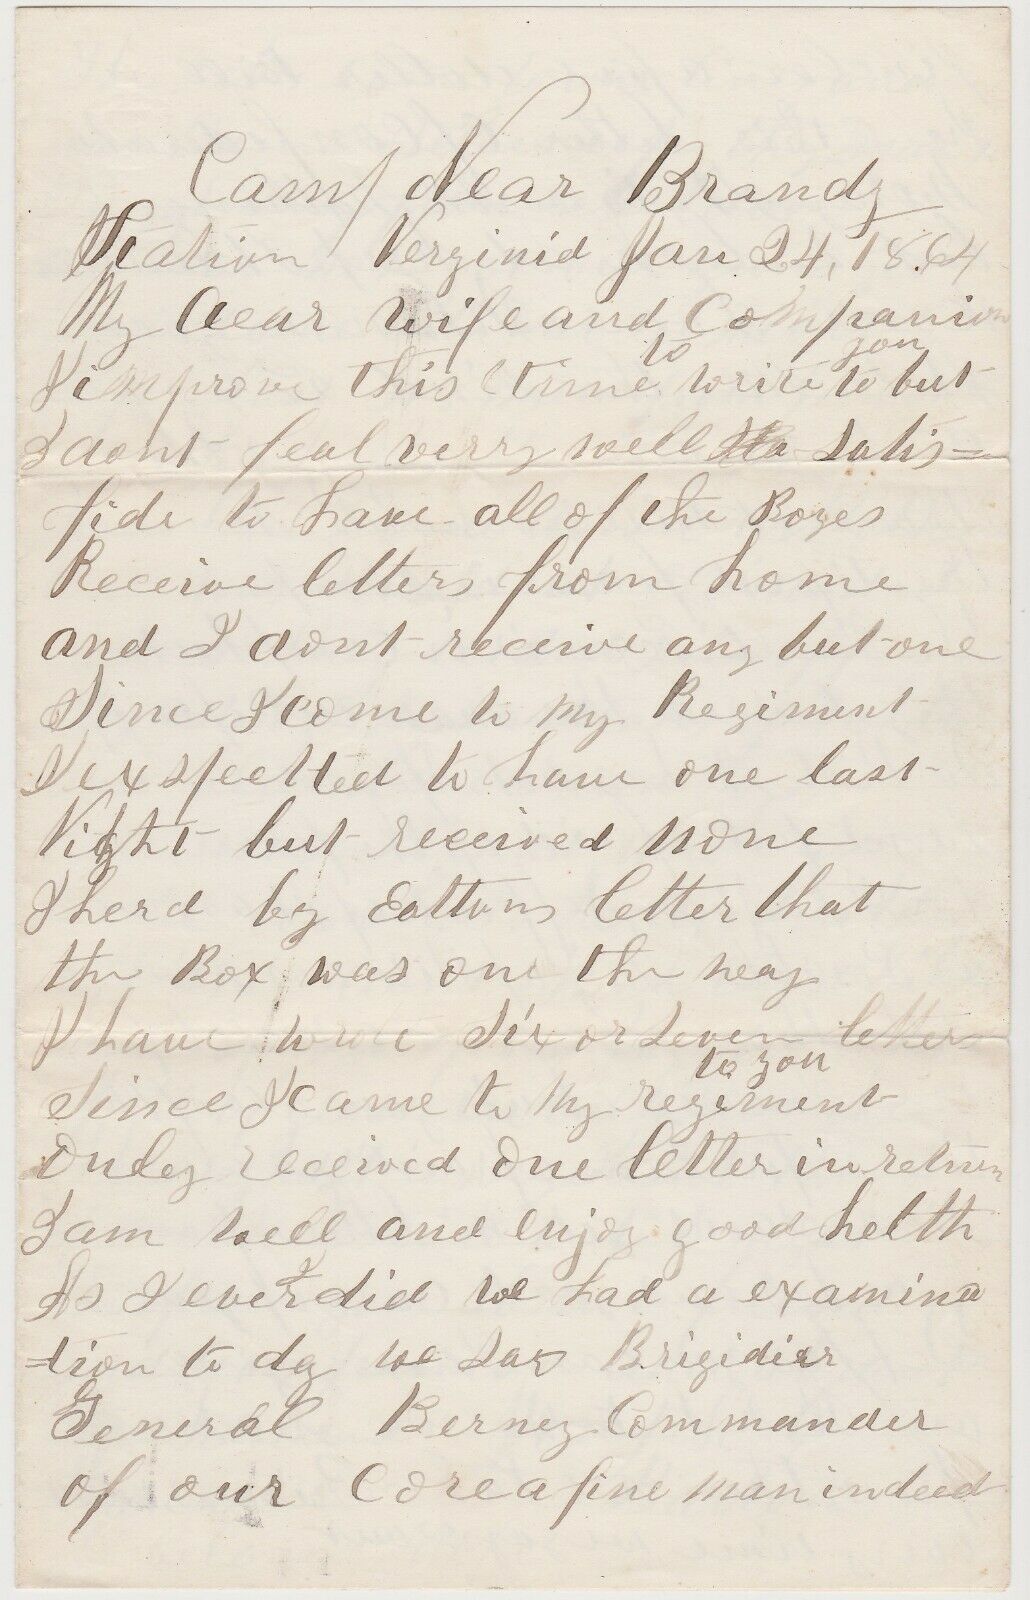 Camp Near Brandy
Station Verginia Jan 24, 1864
My dear wife and Companion
I improve this time to write to you but
I dont feal verry well satis=
fide to have all of the Boyes
Receive letters from home
and I dont receive any but one
Since I come to my Regiment
I exspectted to have one last
Night but received none
I herd by Eattons letter that
the Box was one the way
I have wrote Six or Seven letters
Since I came to my regiment to you
Onley received One letter in return
I am well and enjoy good helth
As I ever did we had a examina
=tion to day we saw Brigidier
General Berney Commander
of our Core a fine man indeed